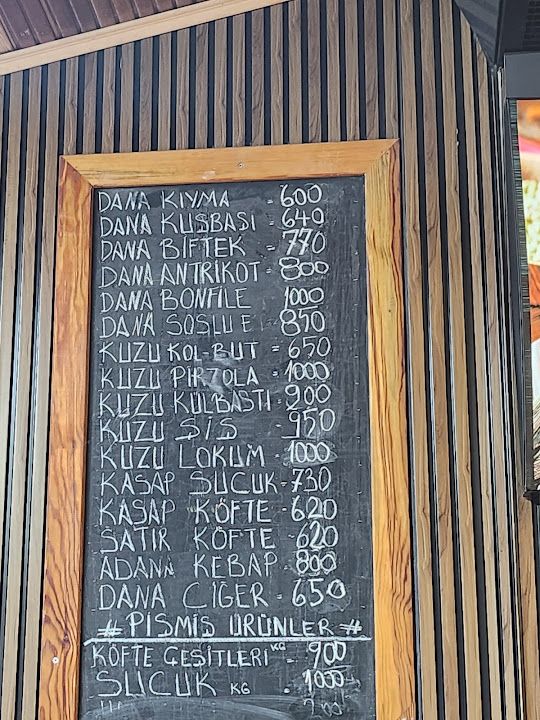 DANA KIYMA = 600
DANA KUSBASI = 640
DANA BIFTEK = 770
DANA ANTRIKOT = 800
DANA BONFILE 1000
DANA SOSLU E = 850
KUZU KOL-BUT = 650
KUZU PIRZOLA = 1000
KUZU KULBASTI = 900
KUZU SIS = 950
KUZU LOKUM = 1000
KASAP SUCUK = 730
KASAP KÖFTE = 620
SATIR KÖFTE = 620
ADANA KEBAP = 800
DANA CIĞER = 650
# PISMIS ÜRÜNLER #
KÖFTE ÇESITLERI KG = 900
SUCUK KG = 1000